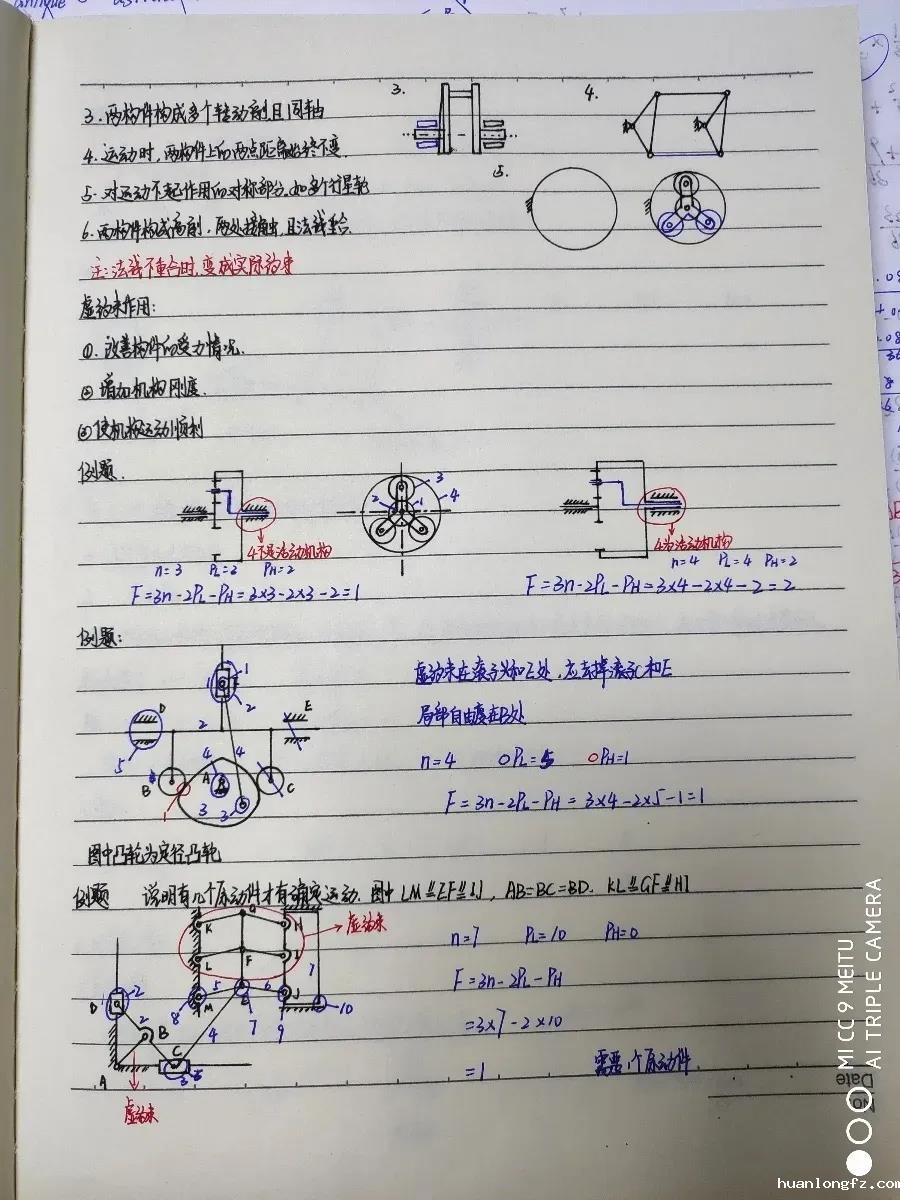 3. 两构件构成多个转动副且同轴
3.
4.
4. 运动时,两构件上的两点距离始终不变.
5. 对运动不起作用的对称部分.如多个行星轮
5.
6. 两构件构成高副,两处接触,且法线重合.
注:法线不重合时,变成实际约束
虚约束作用:
①. 改善构件的受力情况.
② 增加机构刚度.
③ 使机构运动顺利
例题.
3
4
2
1
4不是活动机构
4为活动机构
n=3 PL=3 PH=2
n=4 PL=4 PH=2
F=3n-2PL-PH=3×3-2×3-2=1
F=3n-2PL-PH=3×4-2×4-2=2
例题:
虚约束在滚子义和E处,应去掉滚子C和E
局部自由度在B处
n=4 PL=5 PH=1
F=3n-2PL-PH=3×4-2×5-1=1
1
1
F
2
D
E
2
5
4
4
B
A
C
3
3
1
图中凸轮为定径凸轮
例题 说明有几个原动件才有确定运动.图中LM⫽EF⫽IJ,AB=BC=BD. KL⫽GF⫽HI
K
G
H
虚约束
L
F
I
7
M
5
6
J
8
E
7
9
10
D
2
2
B
4
C
3
A
虚约束
n=7 PL=10 PH=0
F=3n-2PL-PH
=3×7-2×10
=1 需要1个原动件
No.
Date
MI CC 9 MEITU
AI TRIPLE CAMERA
huanlongfz.com